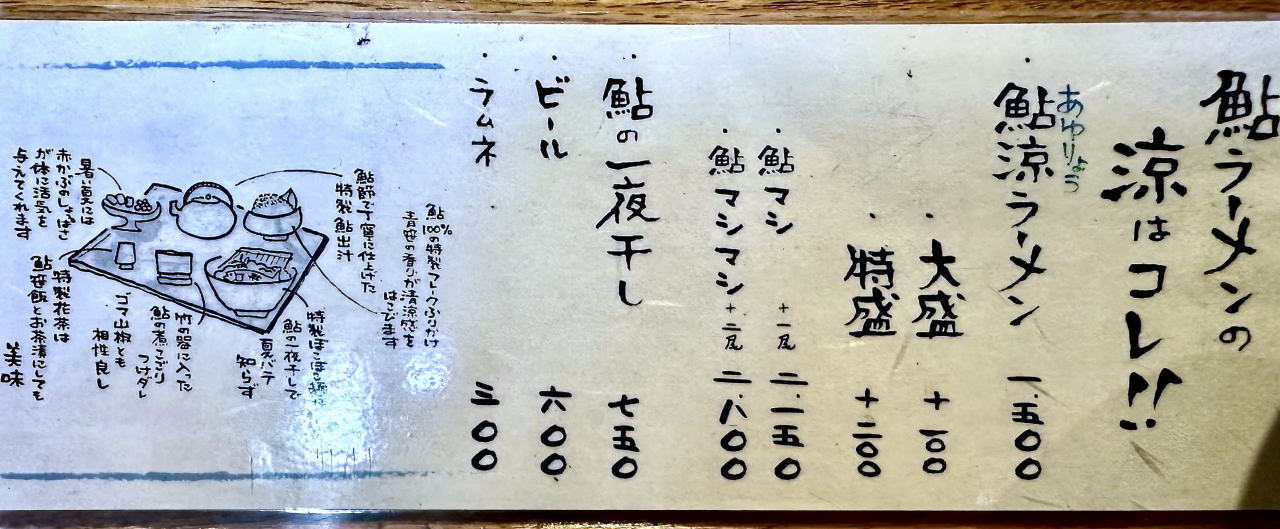 鮎ラーメンの
涼はコレ!!
あゆりょう
・鮎涼ラーメン 一、五〇〇
・大盛 +一〇〇
・特盛 +二〇〇
・鮎マシ +一尾 二、一五〇
・鮎マシマシ +二尾 二、八〇〇
・鮎の一夜干し 七五〇
・ビール 六〇〇
・ラムネ 三〇〇
鮎100%の特製フレークふりかけ
青笹の香りが清涼感を
はこびます
鮎節で丁寧に仕上げた
特製鮎出汁
特製ぼこぼこ麺
鮎の一夜干しで
夏バテ
知らず
竹の器に入った
鮎の煮こごり
つけダレ
ゴマ山椒とも
相性良し
暑い夏には
赤かぶのしょっぱさ
が体に活気を
与えてくれます
特製花茶は
鮎笹飯とお茶漬にしても
美味